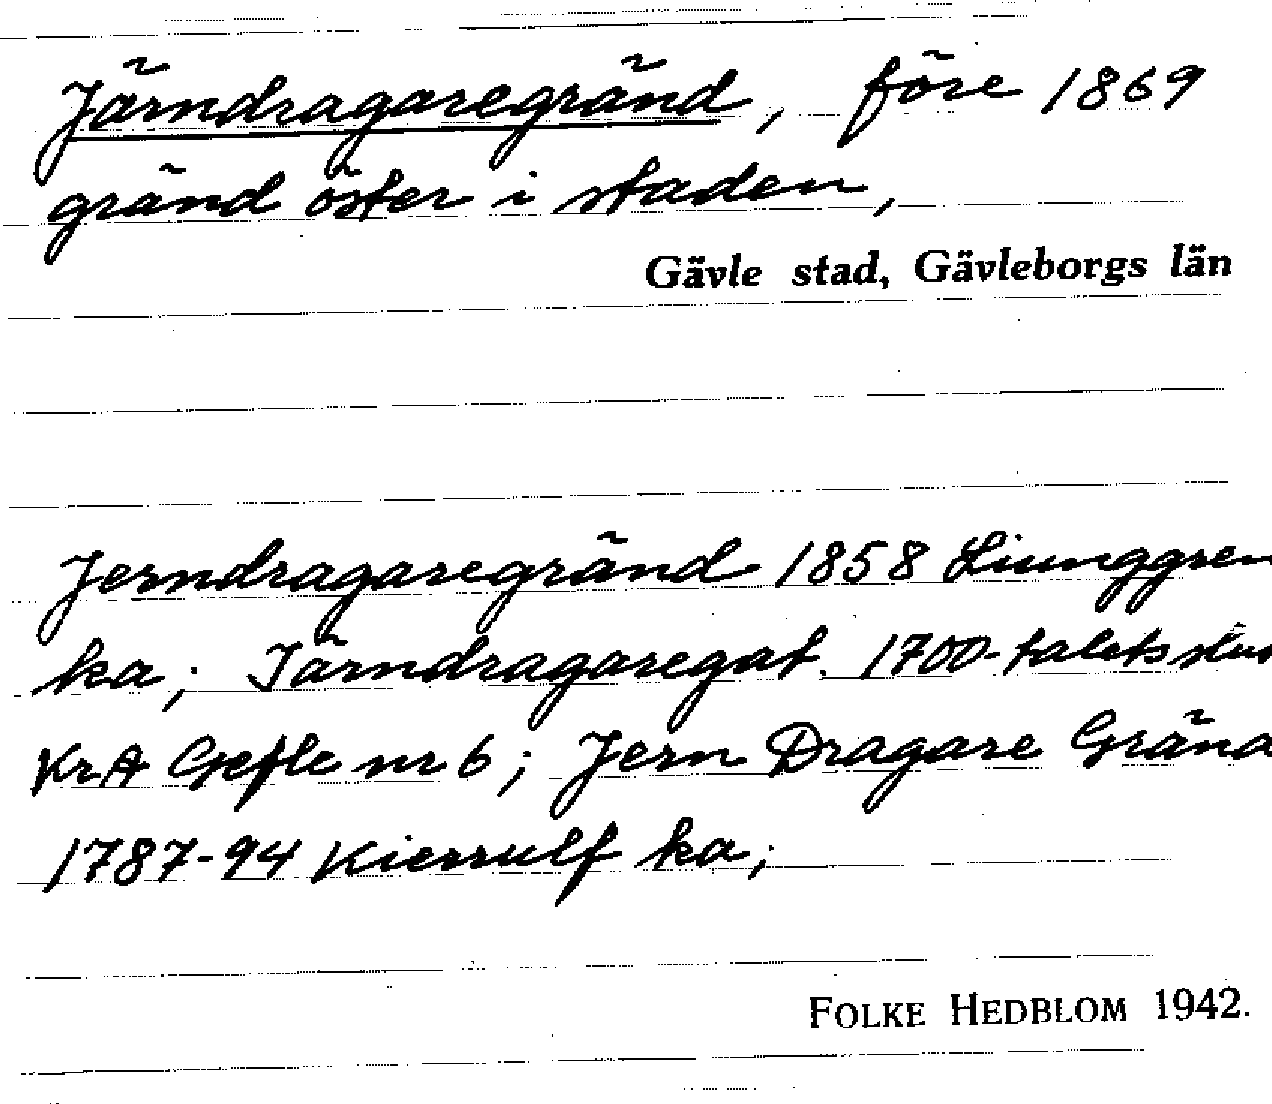 Järndragaregränd, före 1869
gränd öster i staden,
Gävle stad, Gävleborgs län
Jerndragaregränd 1858 Ljunggren
ka; Järndragaregat. 1700-talets
KrA Gefle nr 6; Jern Dragare Gränd
1787-94 Kierrulf ka;
FOLKE HEDBLOM 1942.